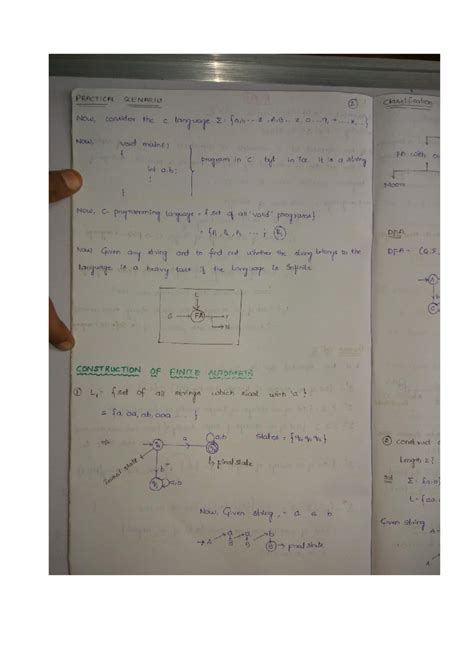 PRACTICAL SCENARIO
Now, consider the C language Σ = {a,b, ... z, A,B ... Z, 0 ... 9, + ...}
Now, void main()
{
int a,b;
}
program in C it is a string
Now, C programming language = {set of all 'void' programs}
= {P₁, P₂, P₃
Now Given any string and to find out whether the string belongs to the
language is a heavy task if the language is Infinite
L
S → FA → Y
→ N
CONSTRUCTION OF FINITE AUTOMATA
① L₁ = {set of all strings which start with 'a'}
= {a, aa, ab, aaa ....}
a
a,b
States = {q₀, q₁, q₂}
Initial state
b
final state
a,b
Now, Given string, = a a b
→ A a a b
B B B → final state
Classification
FA with o
Moore
DFA
DFA = (Q, Σ,
A
b
C
② Construct
Length 2
Σ = {a,b}
L = {a
Given string
A